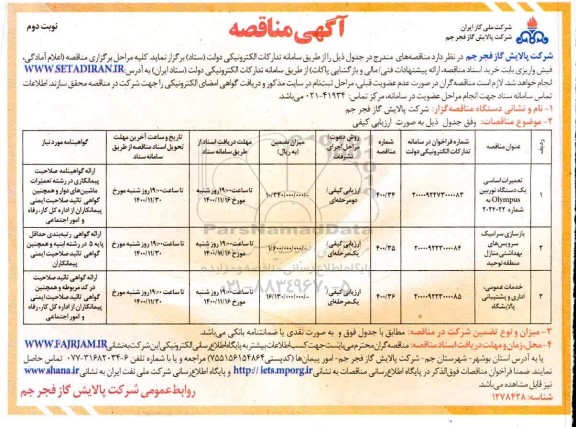 آگهی مناقصه
نوبت دوم
شرکت ملی گاز ایران
شرکت پالایش گاز فجر جم
شرکت پالایش گاز فجر جم در نظر دارد مناقصه‌های مندرج در جدول ذیل را از طریق سامانه تدارکات الکترونیکی دولت (ستاد) برگزار نماید. کلیه مراحل برگزاری مناقصه (اعلام آمادگی،
فیش واریزی بابت خرید اسناد مناقصه، ارائه پیشنهادات فنی/ مالی و بازگشایی پاکات) از طریق سامانه تدارکات الکترونیکی دولت (ستاد ایران) به آدرس WWW.SETADIRAN.IR
انجام خواهد شد. لازم است مناقصه‌گران در صورت عدم عضویت قبلی، مراحل ثبت‌نام در سایت مذکور و دریافت گواهی امضای الکترونیکی را جهت شرکت در مناقصه محقق سازند. اطلاعات
تماس سامانه ستاد جهت انجام مراحل عضویت در سامانه، مرکز تماس: ۴۱۹۳۴-۰۲۱ می‌باشد.
۱- نام و نشانی دستگاه مناقصه‌گزار: شرکت پالایش گاز فجر جم
۲- موضوع مناقصات: وفق جدول ذیل به صورت ارزیابی کیفی
ردیف | عنوان مناقصه | شماره فراخوان در سامانه تدارکات الکترونیکی دولت | شماره مناقصه | روش دعوت مراحل اجرای تشریفات | میزان تضمین (به ریال) | مهلت دریافت اسناد از طریق سامانه ستاد | تاریخ و ساعت آخرین مهلت تحویل اسناد مناقصه از طریق سامانه ستاد | گواهینامه مورد نیاز
۱ | تعمیرات اساسی یک دستگاه توربین Olympus به شماره ۲۰۲۴۰۲۲ | ۲۰۰۰۰۹۲۲۷۳۰۰۰۰۸۳ | ۴۰۰/۳۴ | ارزیابی کیفی/ دومرحله‌ای | ۱۰/۳۴۰/۰۰۰/۰۰۰/- | تا ساعت ۱۹:۰۰ روز شنبه مورخ ۱۴۰۰/۱۱/۱۶ | تا ساعت ۱۹:۰۰ روز شنبه مورخ ۱۴۰۰/۱۱/۳۰ | ارائه گواهینامه صلاحیت پیمانکاری در رشته تعمیرات ماشین‌های دوار و همچنین گواهی تائید صلاحیت ایمنی پیمانکاران از اداره کل کار، رفاه و امور اجتماعی
۲ | بازسازی سرامیک سرویس‌های بهداشتی منازل منطقه توحید | ۴۰۰/۳۵ | ارزیابی کیفی/ یک‌مرحله‌ای | ۱/۶۰۰/۰۰۰/۰۰۰/- | تا ساعت ۱۹:۰۰ روز شنبه مورخ ۱۴۰۰/۱۱/۱۶ | تا ساعت ۱۹:۰۰ روز شنبه مورخ ۱۴۰۰/۱۱/۳۰ | ارائه گواهی رتبه‌بندی حداقل پایه ۵ در رشته ابنیه و همچنین گواهی تائید صلاحیت ایمنی پیمانکاران
۳ | خدمات عمومی، اداری و پشتیبانی پالایشگاه | ۴۰۰/۳۶ | ارزیابی کیفی/ یک‌مرحله‌ای | تا ساعت ۱۹:۰۰ روز شنبه مورخ ۱۴۰۰/۱۱/۱۶ | تا ساعت ۱۹:۰۰ روز شنبه مورخ ۱۴۰۰/۱۱/۳۰ | ارائه گواهی تائید صلاحیت در کد مربوطه و همچنین گواهی تائید صلاحیت ایمنی پیمانکاران از اداره کل کار، رفاه و امور اجتماعی
ParsNamadData
پایگاه اطلاع رسانی مناقصه و مزایده
۰۲۱-۸۸۳۴۹۶۷۰
۳- میزان و نوع تضمین شرکت در مناقصه: مطابق با جدول فوق و به صورت نقدی یا ضمانتنامه بانکی می‌باشد.
۴- محل، زمان و مهلت دریافت اسناد مناقصه: مناقصه‌گران محترم می‌بایست جهت کسب اطلاعات بیشتر به پایگاه اطلاع‌رسانی الکترونیکی این شرکت به نشانی WWW.FAJRJAM.IR
یا به آدرس استان بوشهر- شهرستان جم- شرکت پالایش گاز فجر جم- امور پیمان‌ها (کدپستی ۷۵۵۱۵۶۱۵۴۸۶۴) مراجعه و یا با شماره تلفن ۶-۳۱۶۸۲۰۳۴-۰۷۷ تماس حاصل
نمایند. ضمنا فراخوان مناقصات فوق‌الذکر در پایگاه اطلاع‌رسانی مناقصات به نشانی http://iets.mporg.ir و پایگاه اطلاع‌رسانی شرکت ملی نفت ایران به نشانی www.shana.ir
نیز قابل مشاهده می‌باشد.
شناسه: ۱۲۷۸۴۲۸
روابط عمومی شرکت پالایش گاز فجر جم